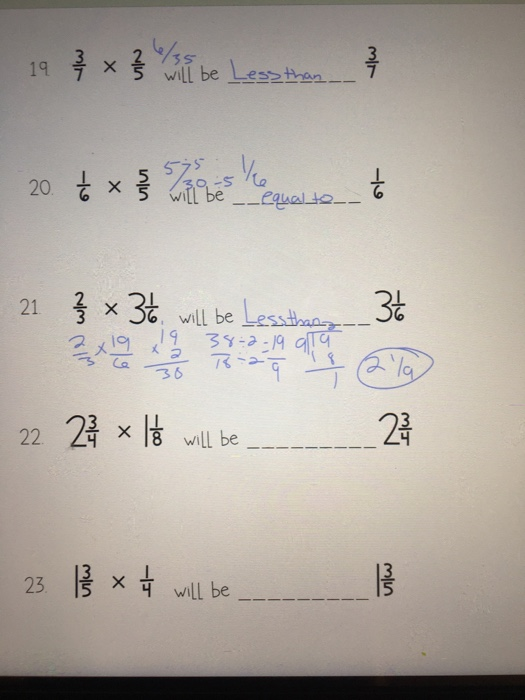 6/35
19. 3/7 × 2/5 will be Less than 3/7
5÷5 1/6
/30÷5
20. 1/6 × 5/5 will be equal to 1/6
21. 2/3 × 3 1/6 will be Less than 3 1/6
2/3 × 19/6 19 × 2 38 38÷2=19 18÷2 9 9 19 18 1 2 1/9
22. 2 3/4 × 1 1/8 will be ________ 2 3/4
23. 1 3/5 × 1/4 will be ________ 1 3/5